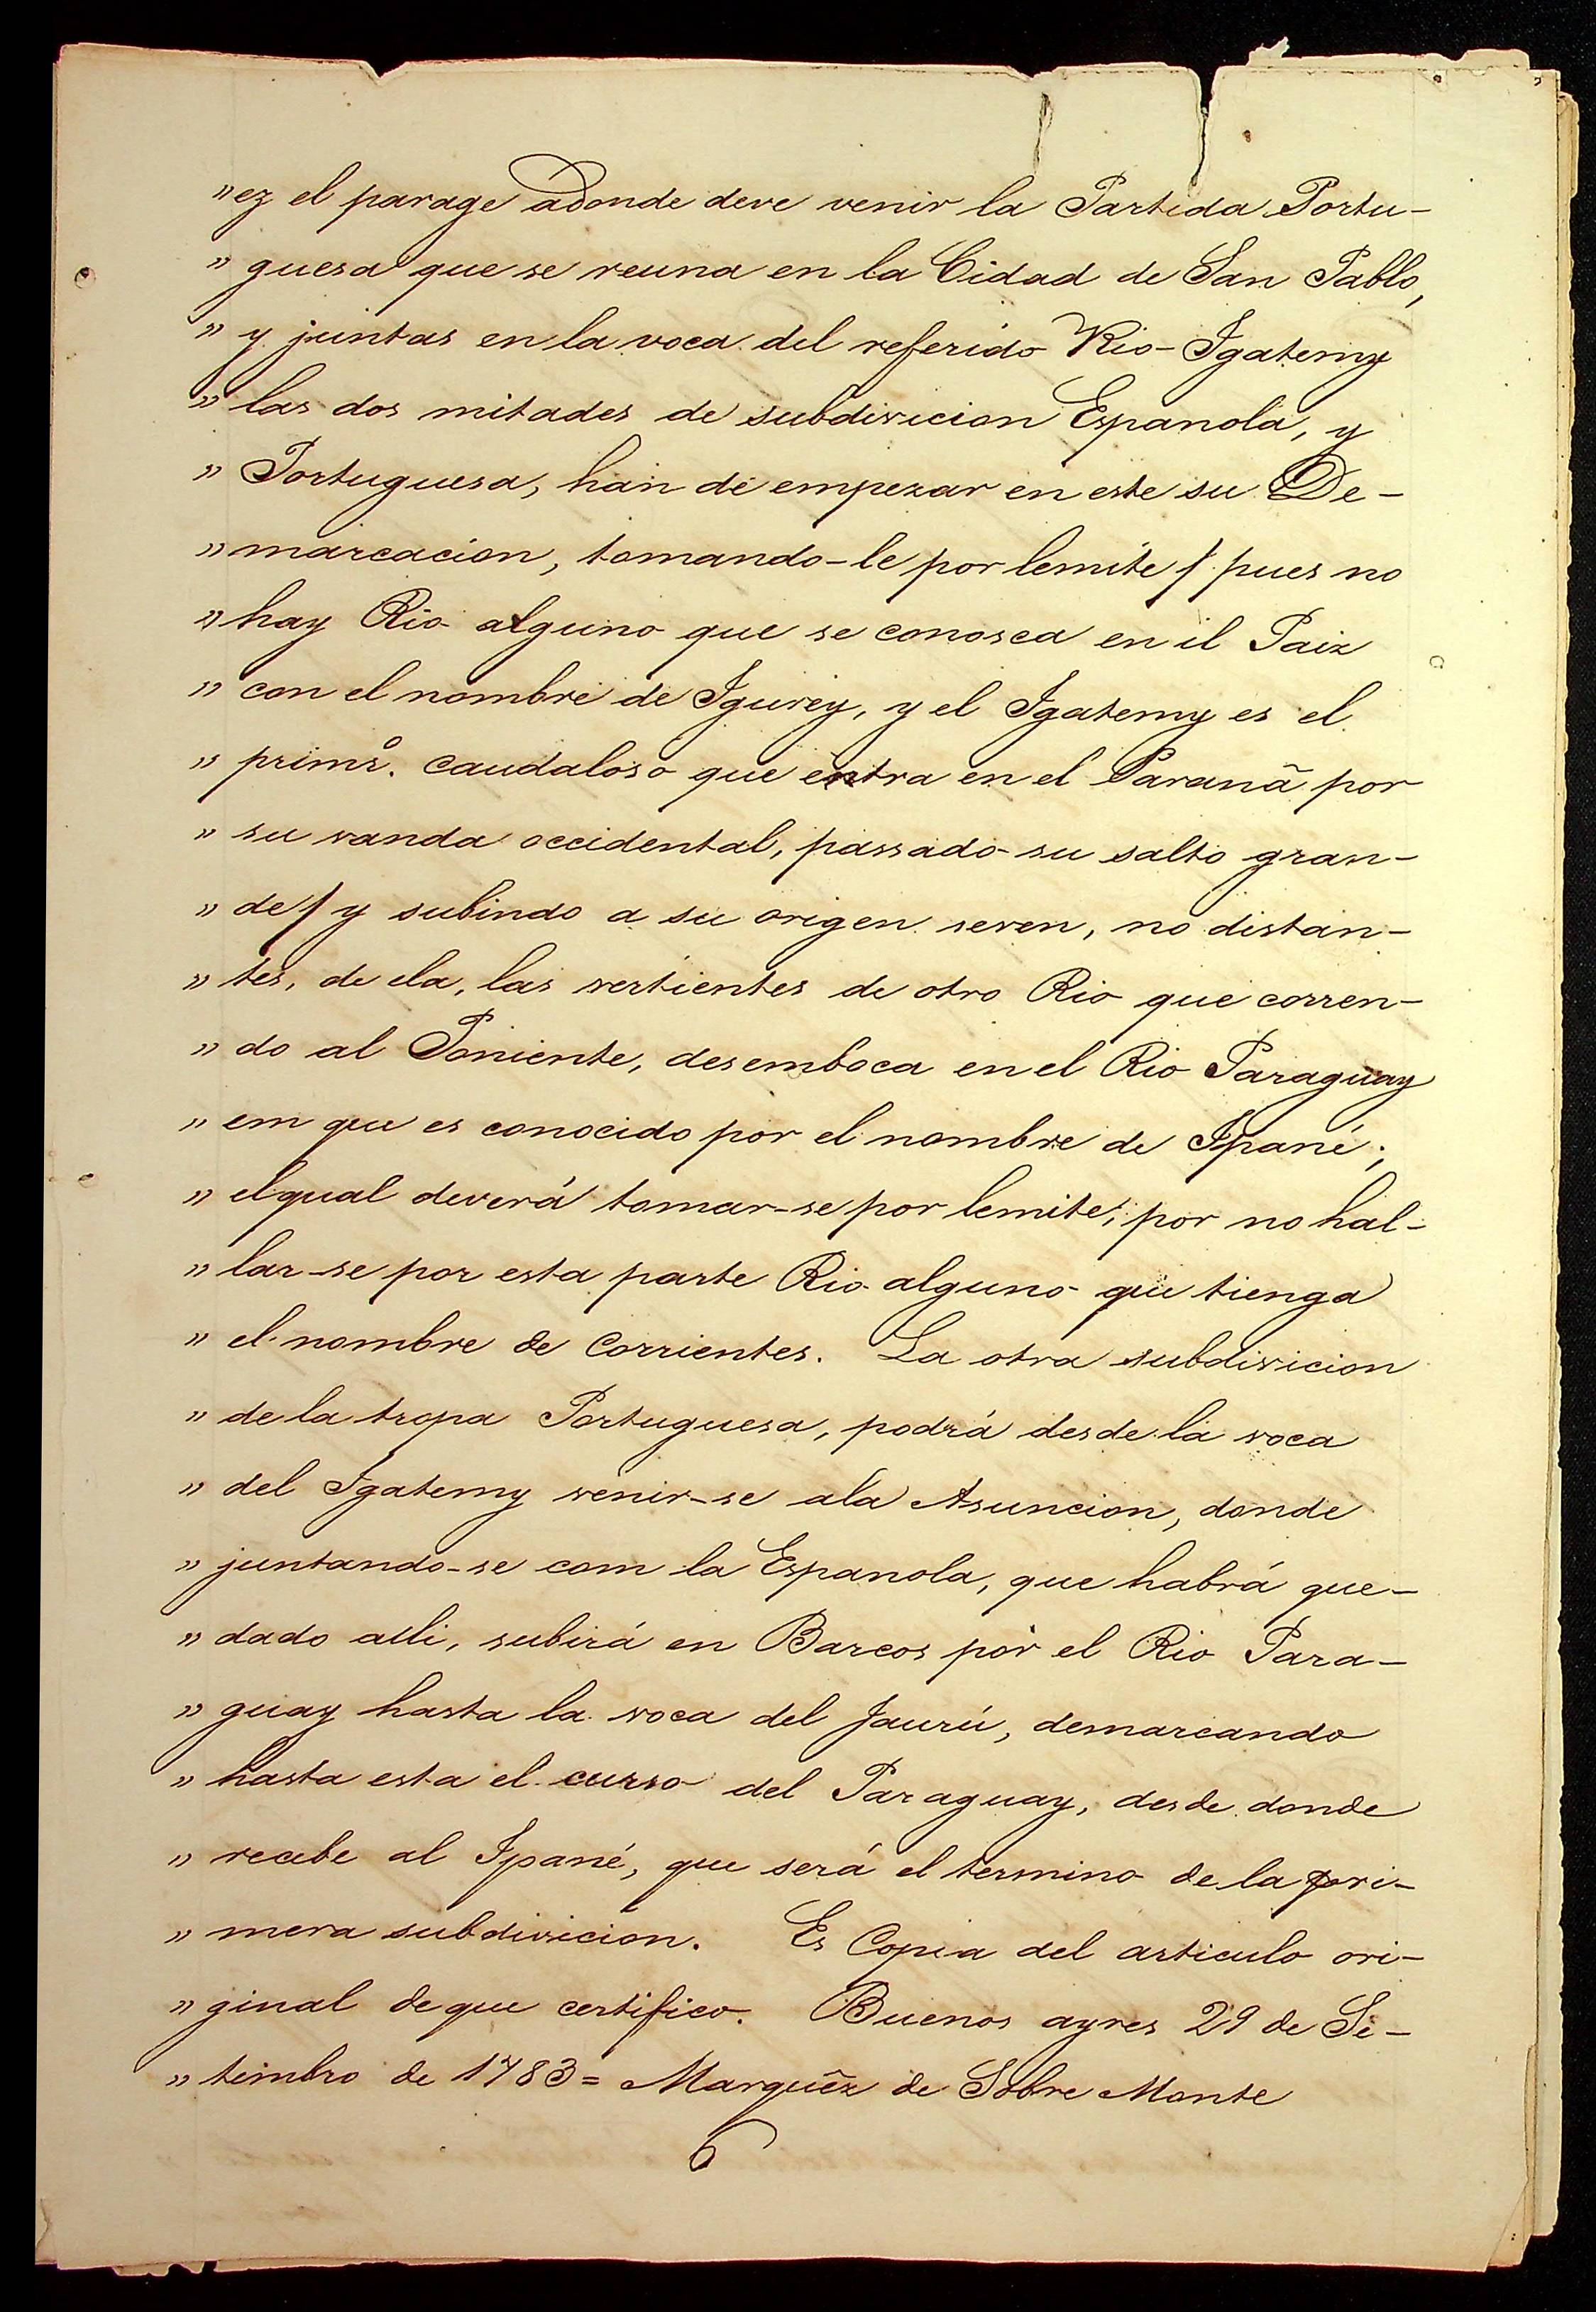 "ez el parage adonde deve venir la Partida Portu-
" guesa que se reuna en la Cidad de San Pablo,
" y juntas en la voca del referido Rio-Igatemy
" las dos mitades de subdivicion Espanola, y
" Portuguesa, han de empezar en este su De-
" marcacion, tomando-le por lemite /. pues no
" hay Rio alguno que se conosca en il Paiz
" con el nombre de Igurey, y el Igatemy es el
" primrº. caudaloso que entra en el Paranã por
" su vanda occidental, passado su salto gran-
" de / y subindo a su origen seven, no distan-
" tes, de ela, las vertientes de otro Rio que corren-
" do al Poniente, desemboca en el Rio Paraguay
" em que es conocido por el nombre de Ipané;
" elqual deverá tomar-se por lemite, por no hal-
" lar-se por esta parte Rio alguno que tienga
" el nombre de Corrientes. La otra subdivicion
" de la tropa Portuguesa, podrá desde la voca
" del Igatemy venir-se ala Asuncion, donde
" juntando-se com la Espanola, que habrá que-
" dado alli, subirá en Barcos por el Rio Para-
" guay hasta la voca del Jaurú, demarcando
" hasta esta el curso del Paraguay, desde donde
" recebe al Ipané, que será el termino de la pri-
" mera subdivicion. Es Copia del articulo ori-
" ginal de que certifico. Buenos ayres 29 de Se-
" timbro de 1783 = Marquêz de Sobre Monte